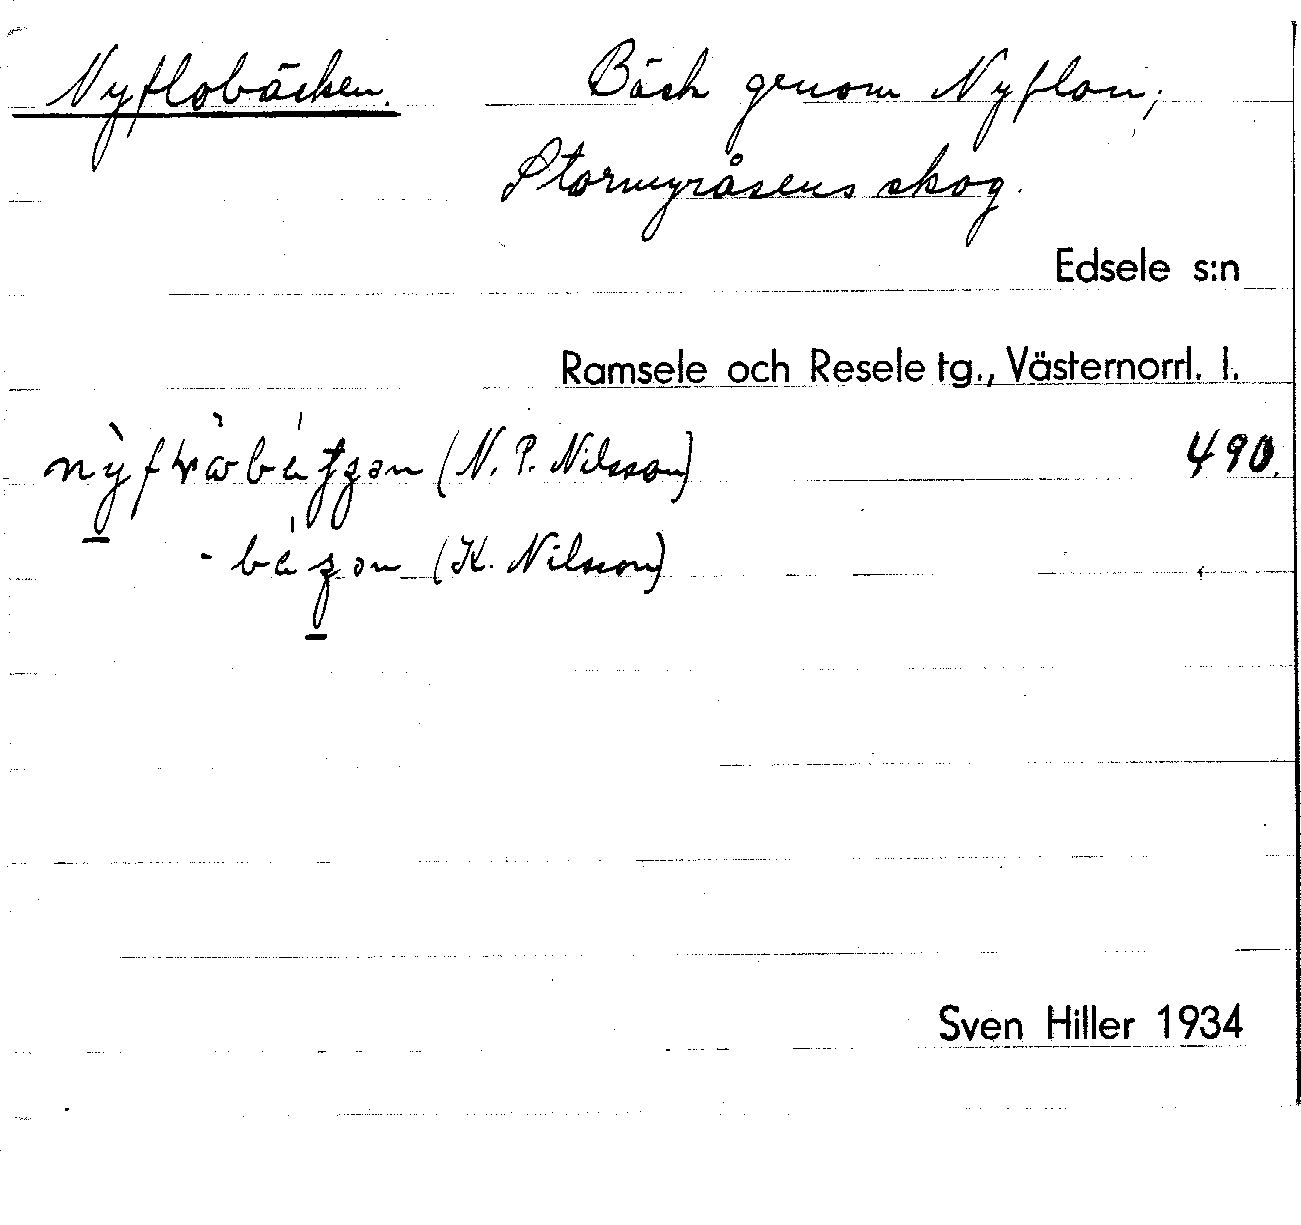 Nyflobäcken. Bäck genom Nyflon;
Stormyråsens skog.
Edsele s:n
Ramsele och Resele tg., Västernorrl. l.
(N. P. Nilsson) 490.
(K. Nilsson)
Sven Hiller 1934